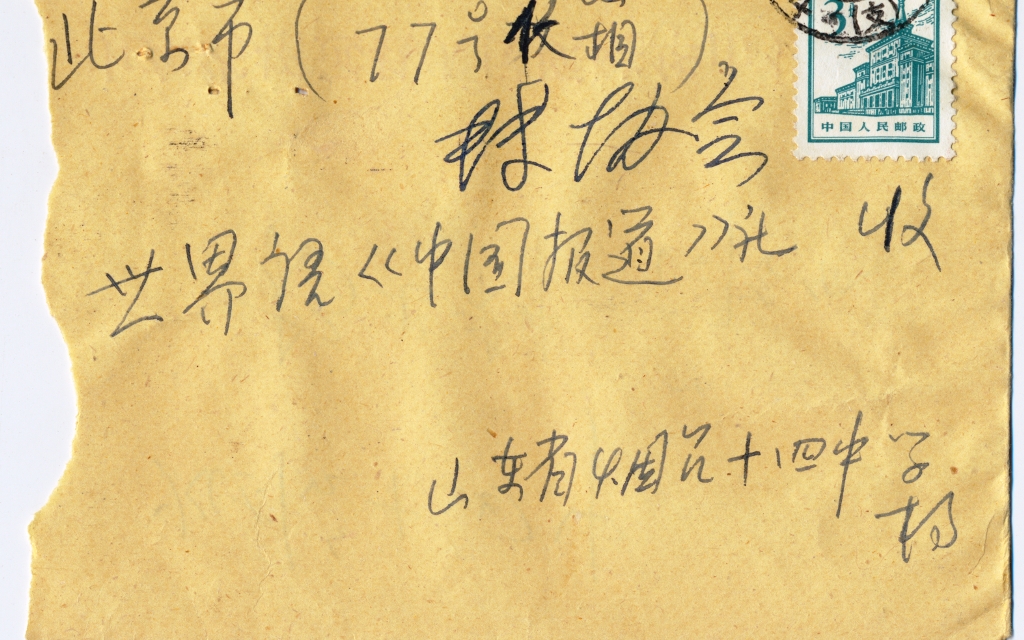 北京市(77号信箱)
球协会
世界语《中国报道》社 收
山东省烟台十四中学
杨
3 (支)
中国人民邮政